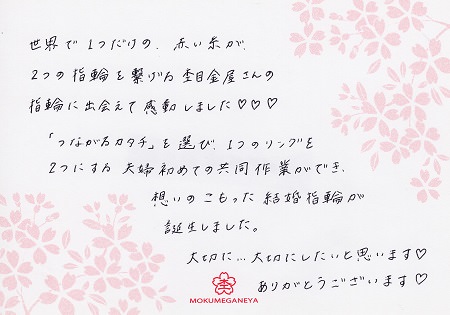 世界で1つだけの、赤い糸が、
2つの指輪を繋げる杢目金屋さんの
指輪に出会えて感動しました♡♡♡
「つながるカタチ」を選び、1つのリングを
2つにする夫婦初めての共同作業ができ、
想いのこもった結婚指輪が
誕生しました。
大切に…大切にしたいと思います♡
ありがとうございます♡
杢
MOKUMEGANEYA